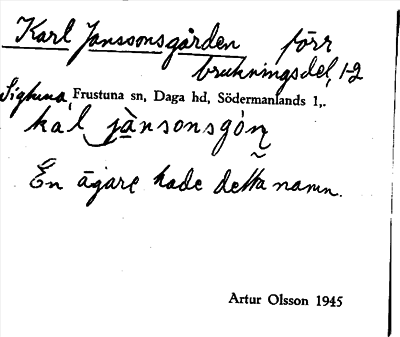 Karl Janssonsgården förr
brukningsdel, 1-2
Sigtuna, Frustuna sn, Daga hd, Södermanlands l,.
kal jànsonsgón
En ägare hade detta namn.
Artur Olsson 1945